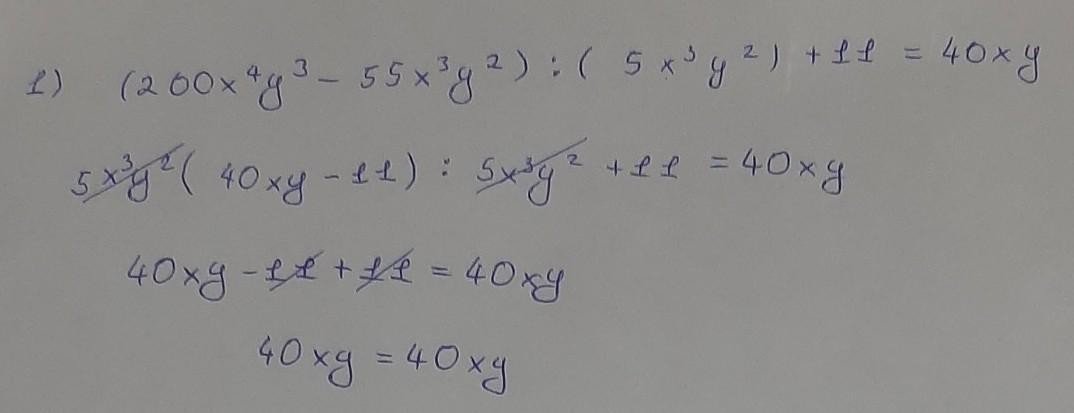 1) (200x⁴y³ - 55x³y²) : ( 5x³y²) + 11 = 40xy
5x³y² ( 40xy - 11) : 5x³y² + 11 = 40xy
40xy - 11 + 11 = 40xy
40xy = 40xy